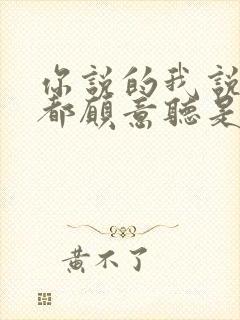 你說的我說
都願意聽是
黃不了